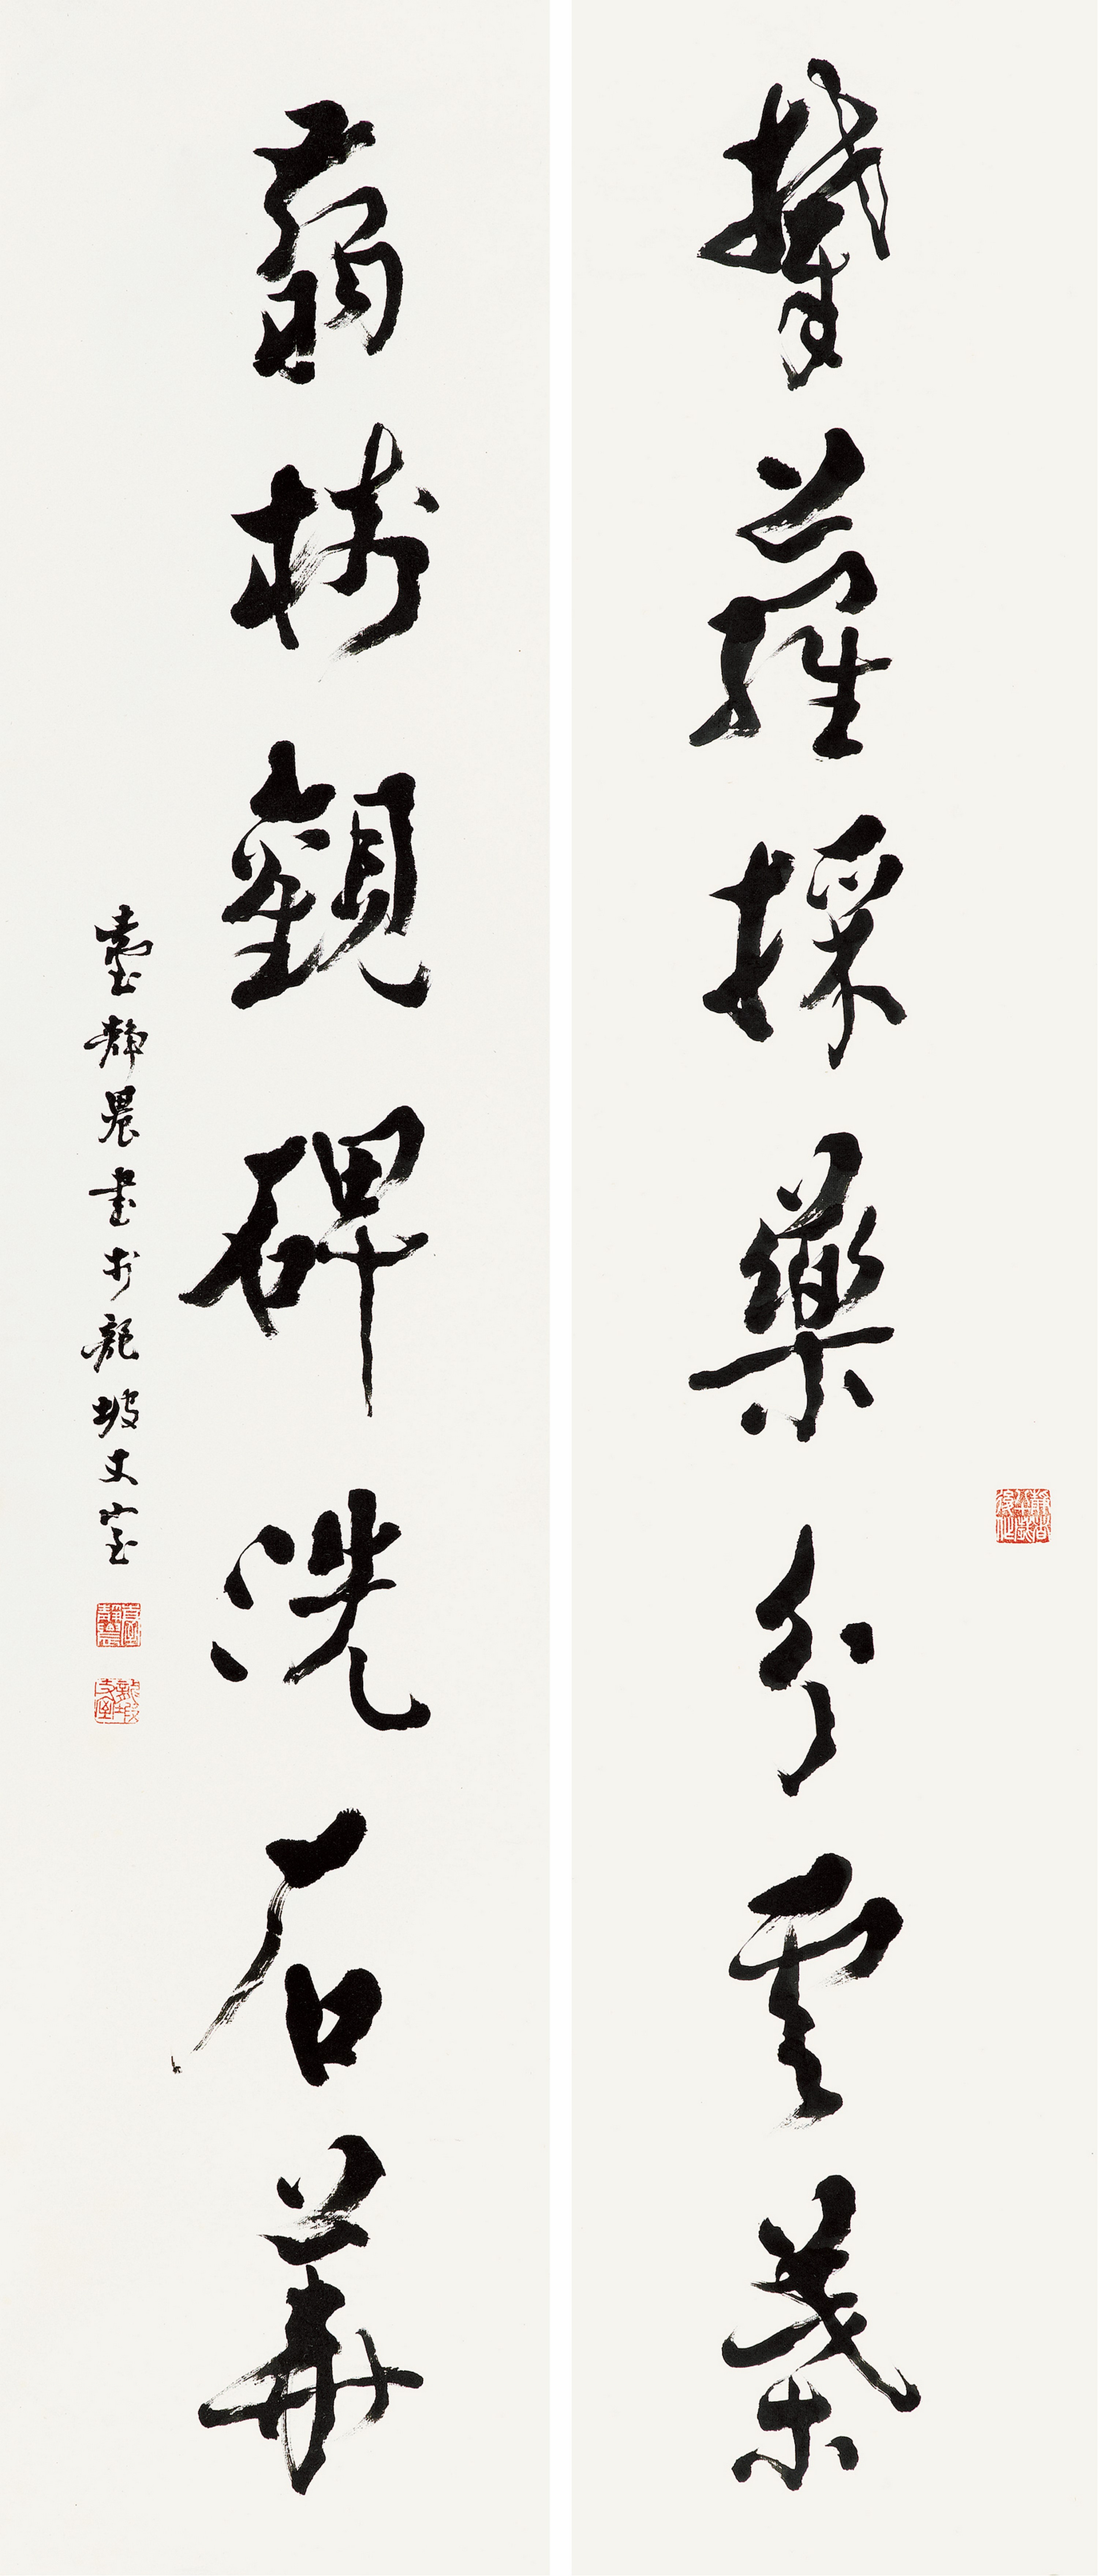 攀蘿採藥分雲葉
翦樹觀碑洗石華
臺靜農書於龍坡丈室
臺靜農